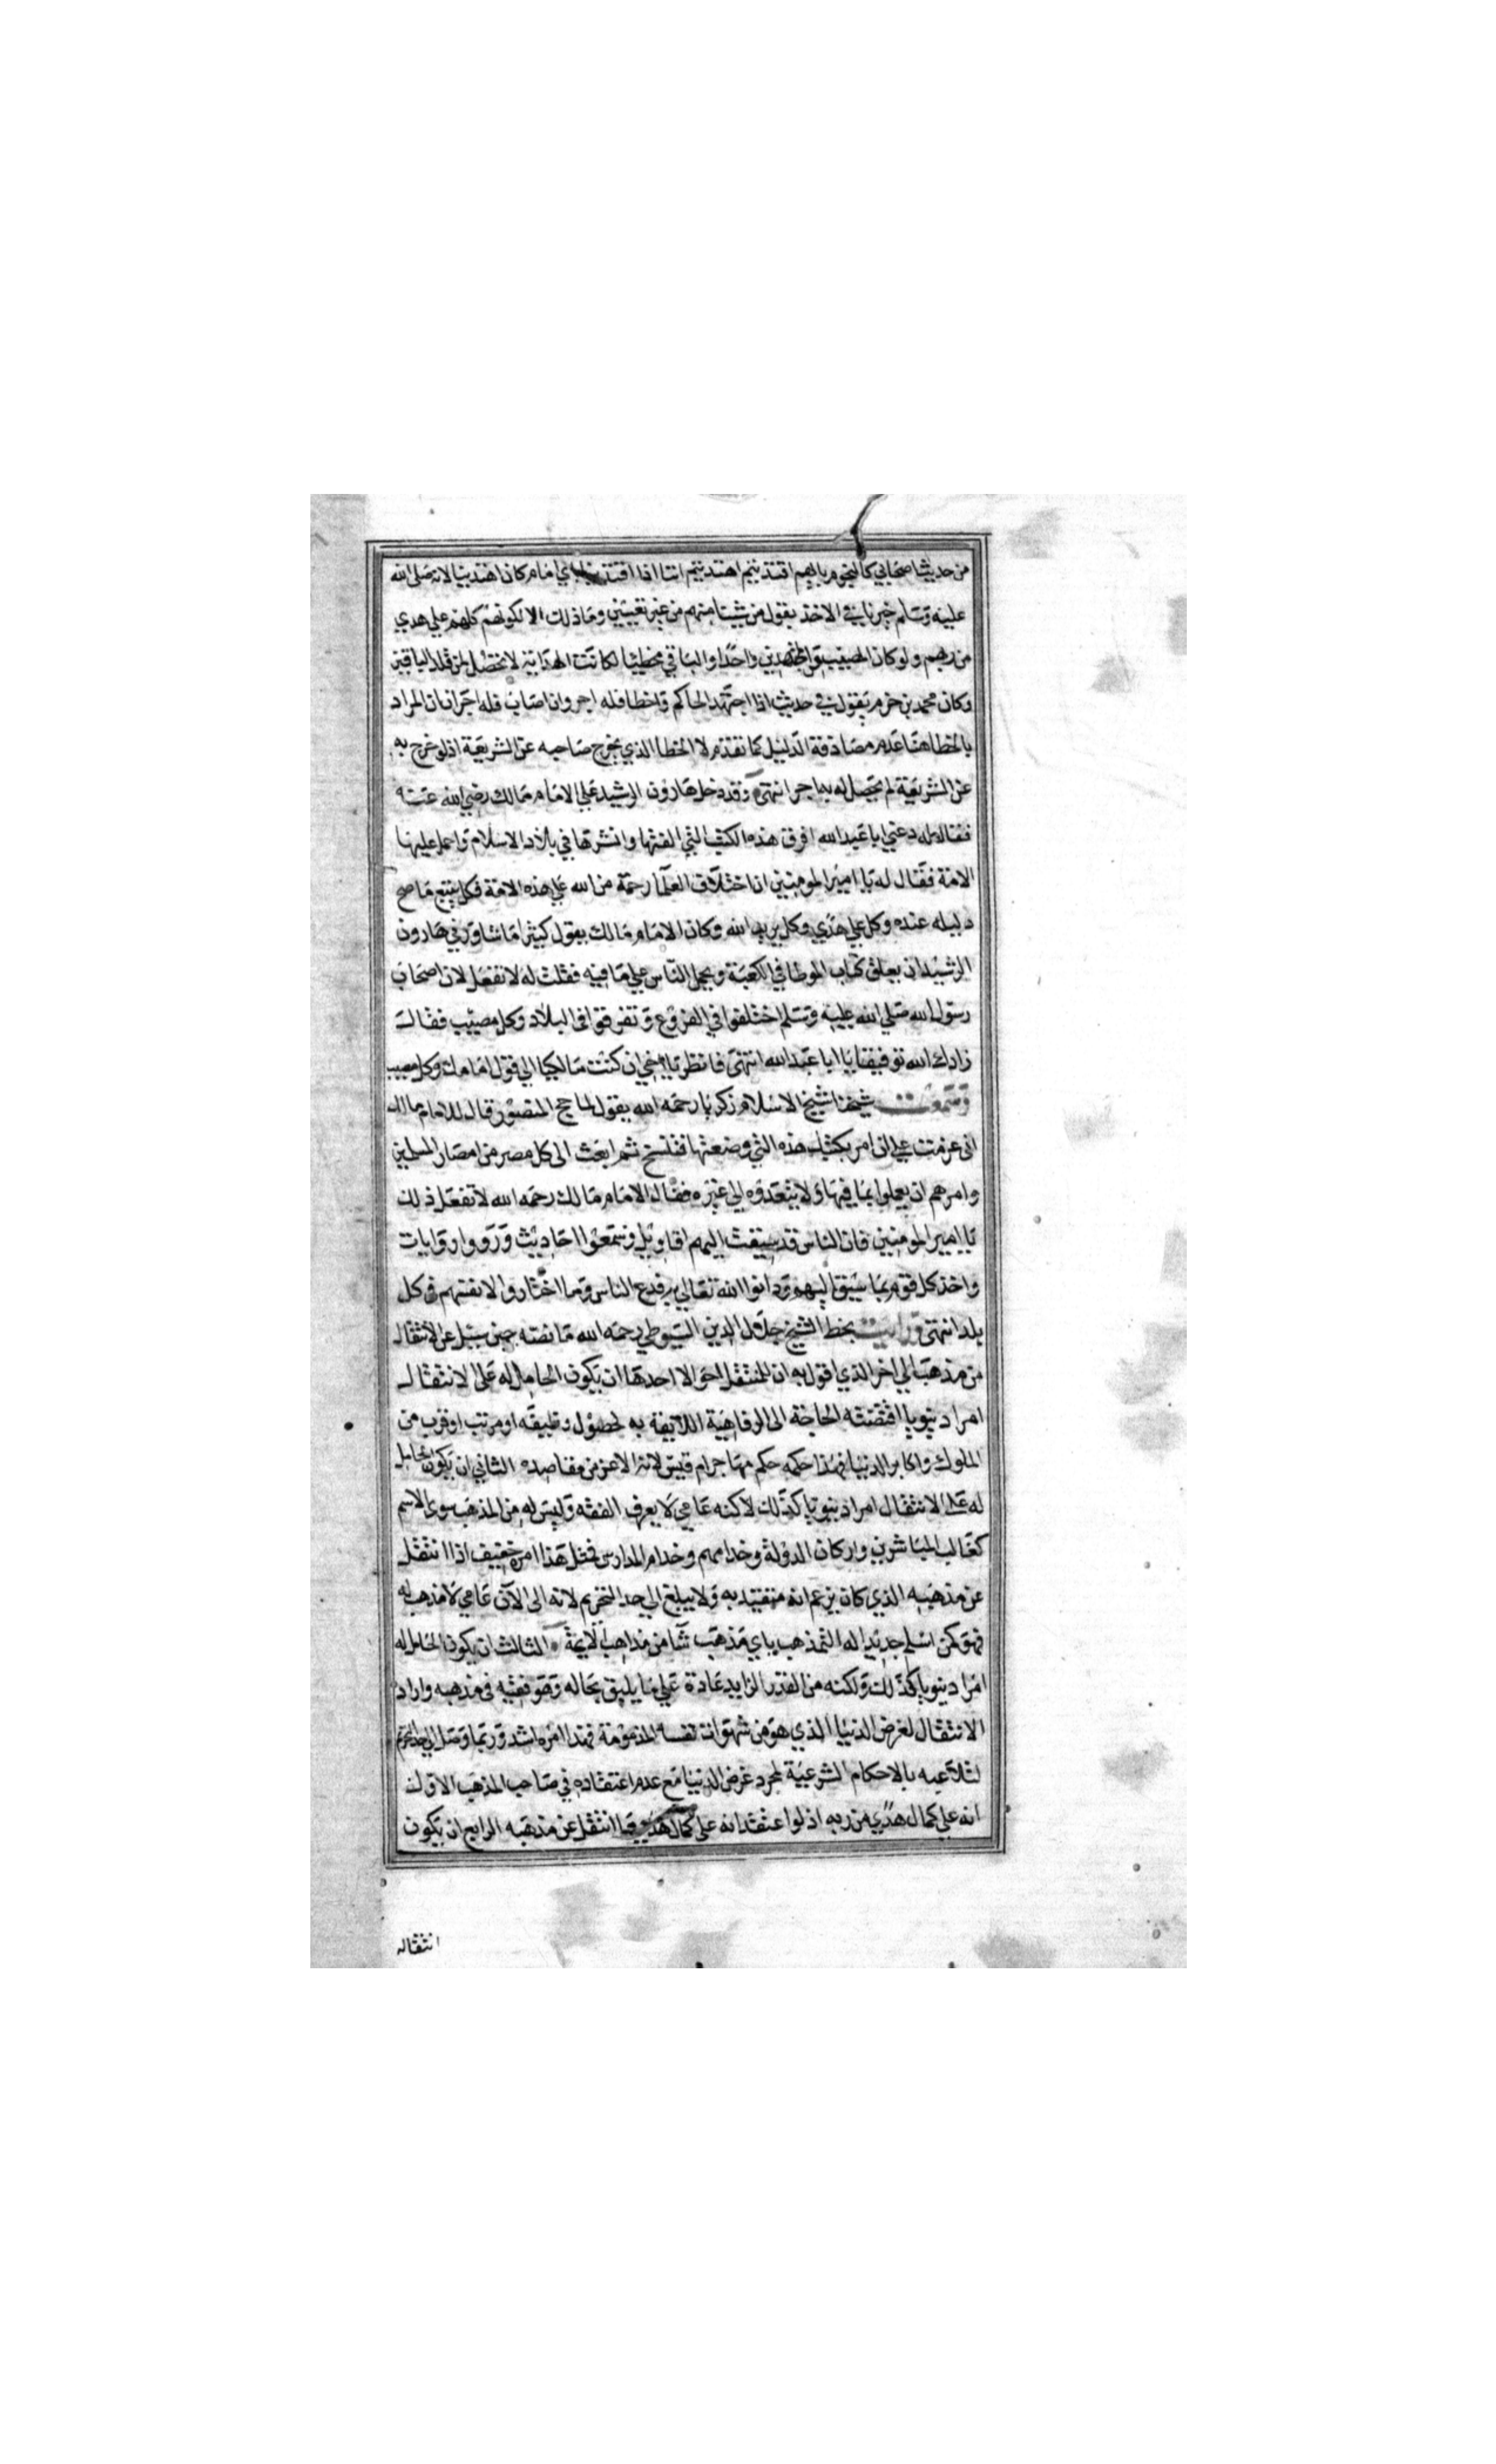 من حديث اصحابي كالنجوم بايهم اقتديتم اهتديتم اننا اذا اقتدينا باي امام كان اهتدينا لانه صلى الله
عليه وسلم خيرنا في الاخذ بقول من شينا منهم من غير تعيين وما ذلك الا لكونهم كلهم علي هدي
من ربهم ولو كان المصيب من المجتهدين واحدا والباقي مخطيا لكانت الهداية لا تحصل لمن قلد الباقين
وكان محمد بن حزم يقول في حديث اذا اجتهد الحاكم واخطا فله اجر وان اصاب فله اجران ان المراد
بالخطا هنا عدم مصادفة الدليل كما تقدم لا الخطا الذي يخرج صاحبه عن الشريعة اذ لو خرج به
عن الشريعة لم يحصل له به اجر انتهى وقد دخل هارون الرشيد علي الامام مالك رضي الله عنه
فقال له دعني ابا عبد الله افرق هذه الكتب التي الفتها وانشرها في بلاد الاسلام واحمل عليها
الامة فقال له يا امير المومنين ان اختلاف العلما رحمة من الله علي هذه الامة فكل يتبع ما صح
دليله عنده وكل علي هدي وكل يريد الله وكان الامام مالك يقول كثيرا ما شاورني هارون
الرشيد ان يعلق كتاب الموطا في الكعبة ويحمل الناس علي ما فيه فقلت له لا تفعل لان اصحاب
رسول الله صلي الله عليه وسلم اختلفوا في الفروع وتفرقوا في البلاد وكل مصيب فقال
زادك الله توفيقا يا ابا عبد الله انتهى فانظر يا اخي ان كنت مالكيا الي قول امامك وكل مصيب
وسمعت شيخنا شيخ الاسلام زكريا رحمه الله يقول لما حج المنصور قال للامام مالك
اني عزمت علي ان امر بكتبك هذه التي وضعتها فتنسخ ثم ابعث الى كل مصر من امصار المسلمين
وامرهم ان يعملوا بما فيها ولا يتعدوه الي غيره فقال الامام مالك رحمه الله لا تفعل ذلك
يا امير المومنين فان الناس قد سبقت اليهم اقاويل وسمعوا احاديث ورووا روايات
واخذ كل قوم بما سبق اليهم ودانوا الله تعالي به فدع الناس وما اختاروا لانفسهم في كل
بلد انتهى ورايت بخط الشيخ جلال الدين السيوطي رحمه الله ما نصه حين سيل عن الانتقال
من مذهب الي اخر الذي اقول به ان للمنتقل احوالا احدها ان يكون الحامل له على الانتقال
امرا دنيويا اقتضته الحاجة الى الرفاهية اللايقة به لحصول وظيفه او مرتب او قرب من
الملوك واكابر الدنيا فهذا حكمه حكم مهاجر ام قيس لانه الاعز من مقاصده الثاني ان يكون الحامل
له على الانتقال امرا دنيويا كذلك لاكنه عامي لا يعرف الفقه وليس له من المذهب سوى الاسم
كغالب المباشرين واركان الدولة وخدامهم وخدام المدارس فمثل هذا امره خفيف اذا انتقل
عن مذهبه الذي كان يزعم انه متقيد به ولا يبلغ الي حد التحريم لانه الى الان عامي لا مذهب له
فهو كمن اسلم جديدا له التمذهب باي مذهب شا من مذاهب الايمة الثالث ان يكون الحامل له
امرا دنيويا كذلك ولكنه من القدر الزايد عادة علي ما يليق بحاله وهو فقيه في مذهبه واراد
الانتقال لغرض الدنيا الذي هو من شهوات نفسه المذمومة فهذا امره اشد وربما وصل الي حد التحريم
لتلاعبه بالاحكام الشرعية لمجرد غرض الدنيا مع عدم اعتقاده في صاحب المذهب الاول
انه علي كمال هدي من ربه اذ لو اعتقد انه علي كمال هدي ما انتقل عن مذهبه الرابع ان يكون
انتقاله